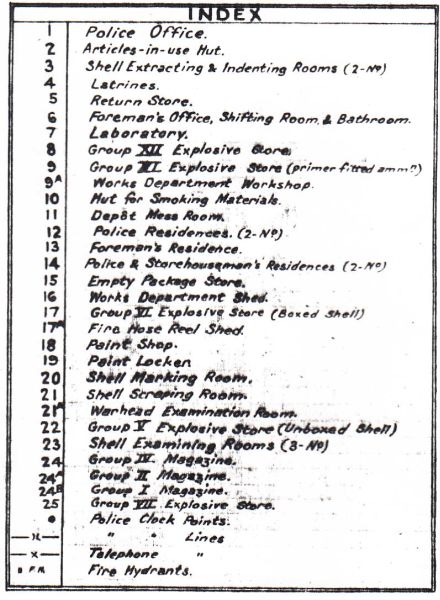 INDEX
1 Police Office.
2 Articles-in-use Hut.
3 Shell Extracting & Indenting Rooms (2-Nº)
4 Latrines.
5 Return Store.
6 Foreman's Office, Shifting Room & Bathroom.
7 Laboratory.
8 Group XII Explosive Store.
9 Group XI Explosive Store (primer fitted ammn)
9A Works Department Workshop.
10 Hut for Smoking Materials.
11 Depôt Mess Room.
12 Police Residences. (2-Nº)
13 Foreman's Residence.
14 Police & Storehouseman's Residences (2-Nº)
15 Empty Package Store.
16 Works Department Shed.
17 Group VI Explosive Store (Boxed Shell)
17A Fire Hose Reel Shed.
18 Paint Shop.
19 Paint Locker
20 Shell Marking Room.
21 Shell Scraping Room.
21A Warhead Examination Room.
22 Group V Explosive Store (Unboxed Shell)
23 Shell Examining Rooms (3-Nº)
24 Group IV Magazine.
24A Group II Magazine.
24B Group I Magazine.
25 Group VII Explosive Store.
Police Clock Points.
" " Lines
—x— Telephone "
F.H. Fire Hydrants.